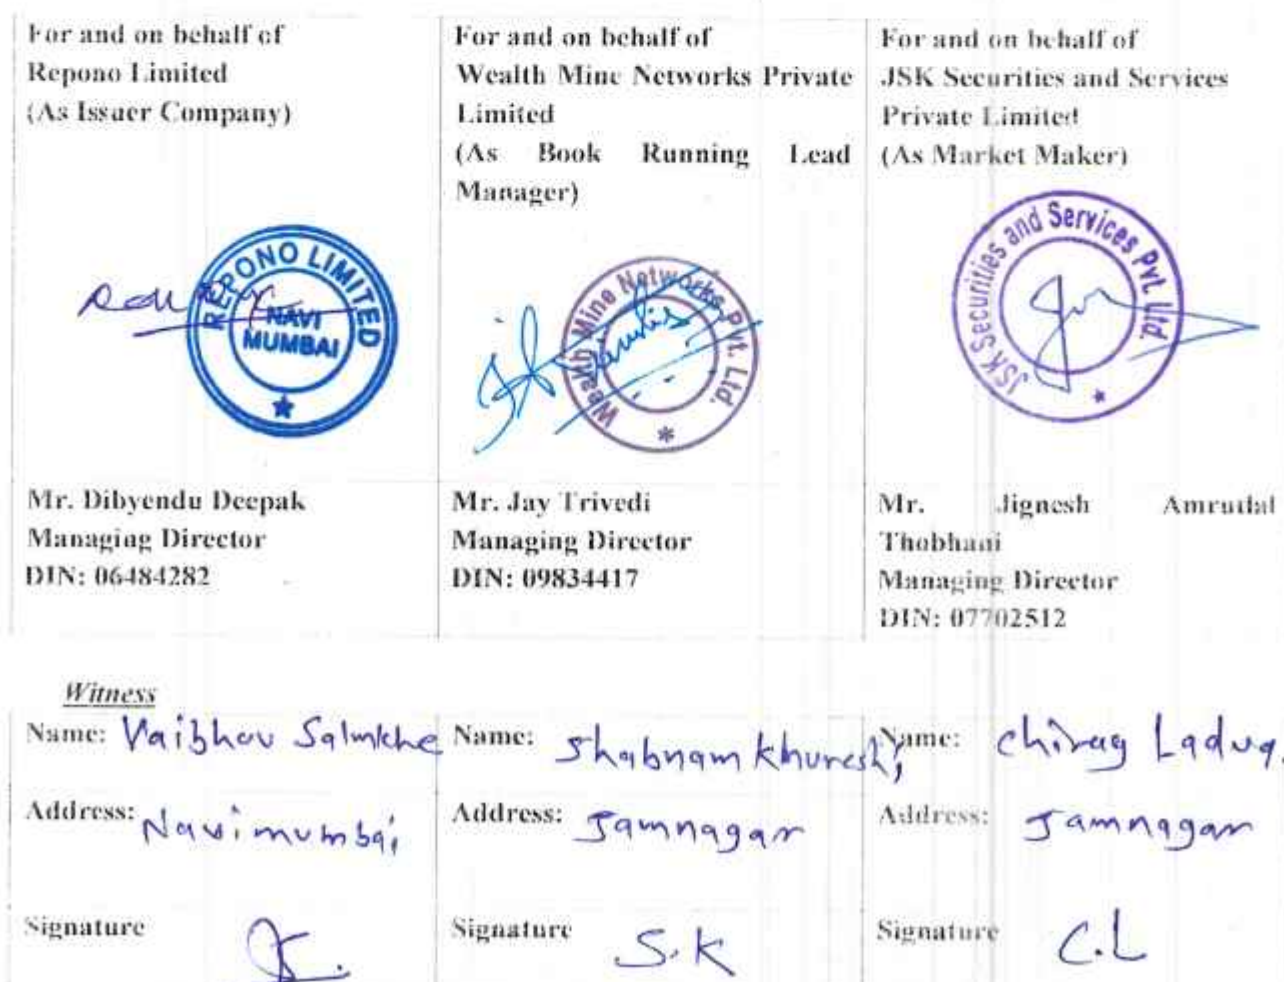 For and on behalf of
Repono Limited
(As Issuer Company)
REPONO LIMITED
NAVI
MUMBAI
Mr. Dibyendu Deepak
Managing Director
DIN: 06484282
For and on behalf of
Wealth Mine Networks Private
Limited
(As Book Running Lead
Manager)
Wealth Mine Networks Pvt. Ltd.
Mr. Jay Trivedi
Managing Director
DIN: 09834417
For and on behalf of
JSK Securities and Services
Private Limited
(As Market Maker)
JSK Securities and Services Pvt. Ltd.
Mr. Jignesh Amrutlal
Thobhani
Managing Director
DIN: 07702512
Witness
Name: Vaibhav
Address: Navi mumbai
Signature
Name: Shabnam Khureshi
Address: Jamnagar
Signature S.K
Name: Chirag
Address: Jamnagar
Signature C.L